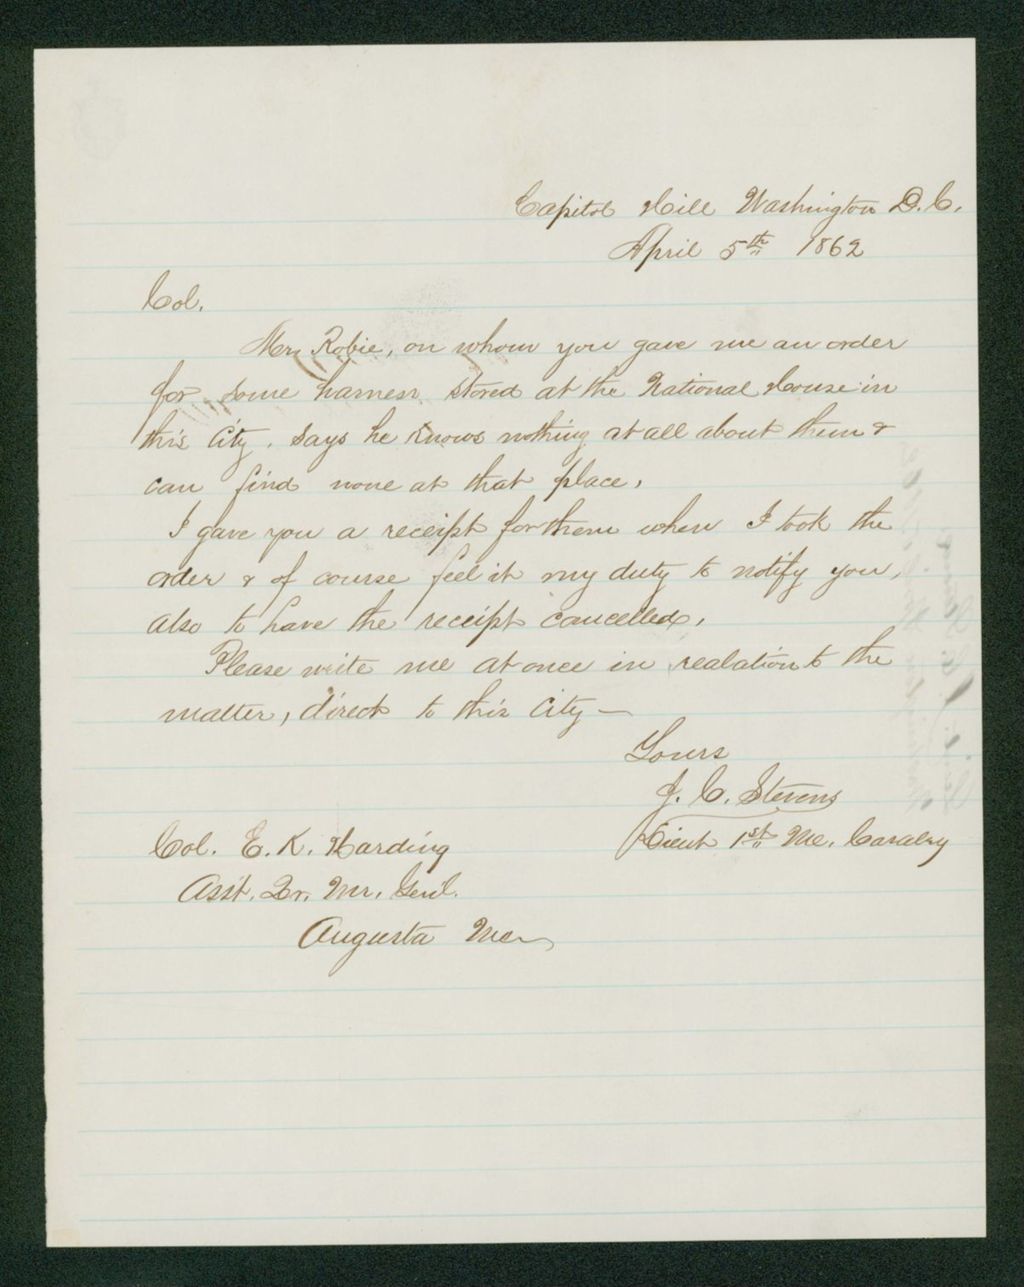 Capitol Hill Washington D.C.
April 5th 1862
Col.
Mr. Robie, on whom you gave me an order
for some harness stored at the National House in
this City, says he knows nothing at all about them &
can find none at that place,
I gave you a receipt for them when I took the
order & of course feel it my duty to notify you,
also to have the receipt cancelled.
Please write me at once in realation to the
matter, direct to this City —
Yours
J. C. Stevens
Lieut 1st Me. Cavalry
Col. E. K. Harding
Asst. Qr. Mr. Genl.
Augusta Me